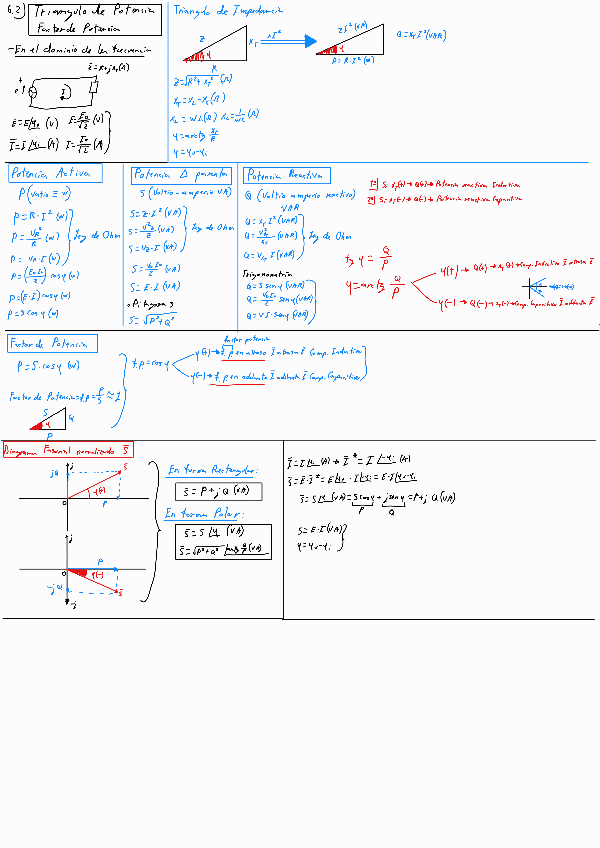 6.2) Triangulo de Potencia
Factor de Potencia
-En el dominio de la frecuencia
Z̄=R+jXT(Ω)
e
I
Ē=E∠φv (V) E=Em/√2 (V)
Ī=I∠φi (A) I=Im/√2 (A)
Triangulo de Impedancia
Z
XT
φ
R
xI²
ZI² (VA)
φ
P=R·I² (W)
Q=XT I² (VAR)
Z=√R²+XT² (Ω)
XT=XL-XC(Ω)
XL=WL(Ω) XC=1/WC (Ω)
φ=arctg XT/R
φ=φv-φi
Potencia Activa
P (Vatio Ξ W)
P=R·I² (W)
P=VR²/R (W)
P=VR·I (W)
Ley de Ohm
P=(Em Im/2) cosφ (W)
P=(E·I) cosφ (W)
P=S cosφ (W)
Potencia Aparente
S (Voltio-amperio VA)
S=Z·I² (VA)
S=Vz²/Z (VA)
S=Vz·I (VA)
Ley de Ohm
S=E·I (VA)
•Pitagoras
S=√P²+Q²
Potencia Reactiva
Q (Voltio amperio reactivo)
VAR
Q=XT I² (VAR)
Q=Vx²/XT (VAR)
Q=Vx I (VAR)
Ley de Ohm
Trigonometria
Q=S senφ (VAR)
Q=V·I senφ (VAR)
1º Si XT(+)→Q(+)→Potencia reactiva Inductiva
2º Si XT(-)→Q(-)→Potencia reactiva Capacitiva
tgφ=Q/P
φ=arctg Q/P
φ(+)→Q(+)→XT(+)→Comp.Inductivo Ī atrasa Ē
φ(-)→Q(-)→XT(-)→Comp.Capacitivo Ī adelanta Ē
Factor de Potencia
P=S·cosφ (W)
Factor de Potencia=f.p=P/S≈1
S
Q
φ
P
factor potencia
f.p=cosφ
φ(+)→f.p en atraso Ī atrasa Ē Comp. Inductivo
φ(-)→f.p en adelanto Ī adelanta Ē Comp. Capacitivo
Diagrama Fasorial normalizado S̄
j
jQ
S̄
φ(+)
0
P
j
P
0
φ(-)
-jQ
S̄
-j
En forma Rectangular:
S̄=P+jQ (VA)
En forma Polar:
S̄=S∠φ (VA)
S̄=√P²+Q² ∠arctg Q/P (VA)
Ī=I∠φi (A)→Ī*=I∠-φi (A)
S̄=Ē·Ī*=E∠φv·I∠-φi=E·I∠φv-φi
S̄=S∠φ (VA)=S cosφ+jsenφ=P+jQ (VA)
P Q
S=E·I (VA)
φ=φv-φi